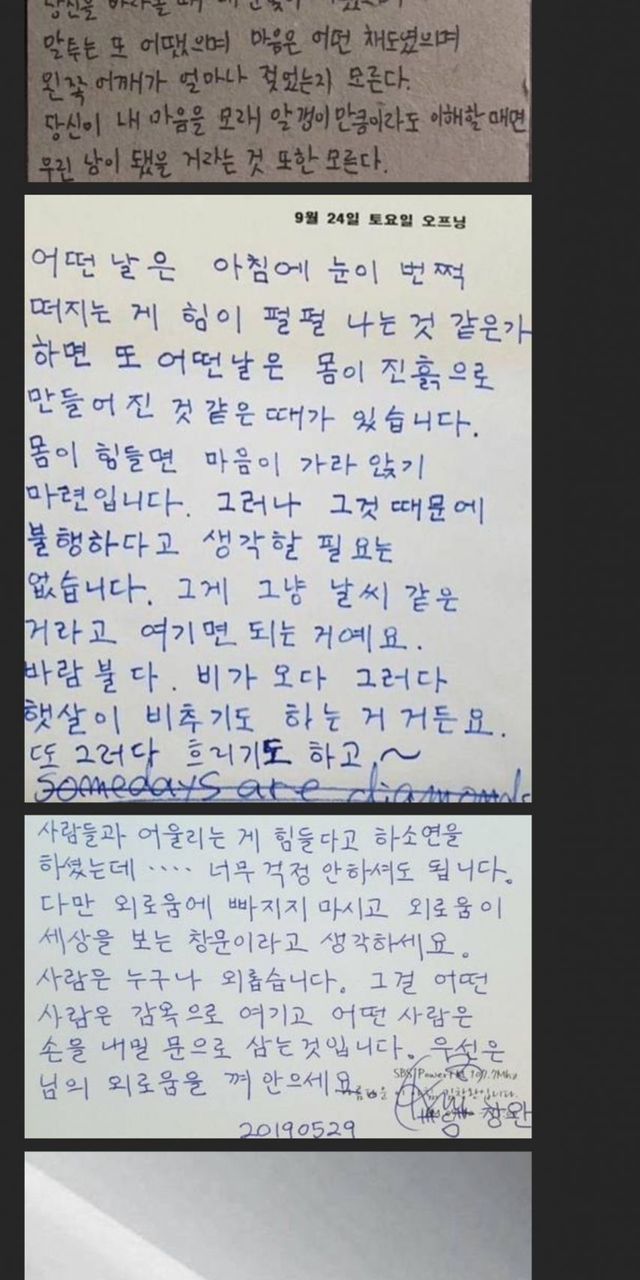 당신을 바라볼 때 내
말투는 또 어땠으며 마음은 어떤 채도였으며
왼쪽 어깨가 얼마나 젖었는지 모른다.
당신이 내 마음을 모래 알갱이만큼이라도 이해할 때면
우린 남이 됐을 거라는 것 또한 모른다.
9월 24일 토요일 오프닝
어떤 날은 아침에 눈이 번쩍
떠지는 게 힘이 펄펄 나는 것 같은가
하면 또 어떤날은 몸이 진흙으로
만들어 진 것 같은 때가 있습니다.
몸이 힘들면 마음이 가라 앉기
마련입니다. 그러나 그것 때문에
불행하다고 생각할 필요는
없습니다. 그게 그냥 날씨 같은
거라고 여기면 되는 거예요.
바람 불다. 비가 오다 그러다
햇살이 비추기도 하는 거 거든요.
또 그러다 흐리기도 하고 ~
somedays are diamonds
사람들과 어울리는 게 힘들다고 하소연을
하셨는데 .... 너무 걱정 안하셔도 됩니다.
다만 외로움에 빠지지 마시고 외로움이
세상을 보는 창문이라고 생각하세요.
사람은 누구나 외롭습니다. 그걸 어떤
사람은 감옥으로 여기고 어떤 사람은
손을 내밀 문으로 삼는것입니다. 우선은
님의 외로움을 껴 안으세요
SBS PowerFM 107.7Mhz
아름다운 이 아침 김창완입니다.
창완
20190529